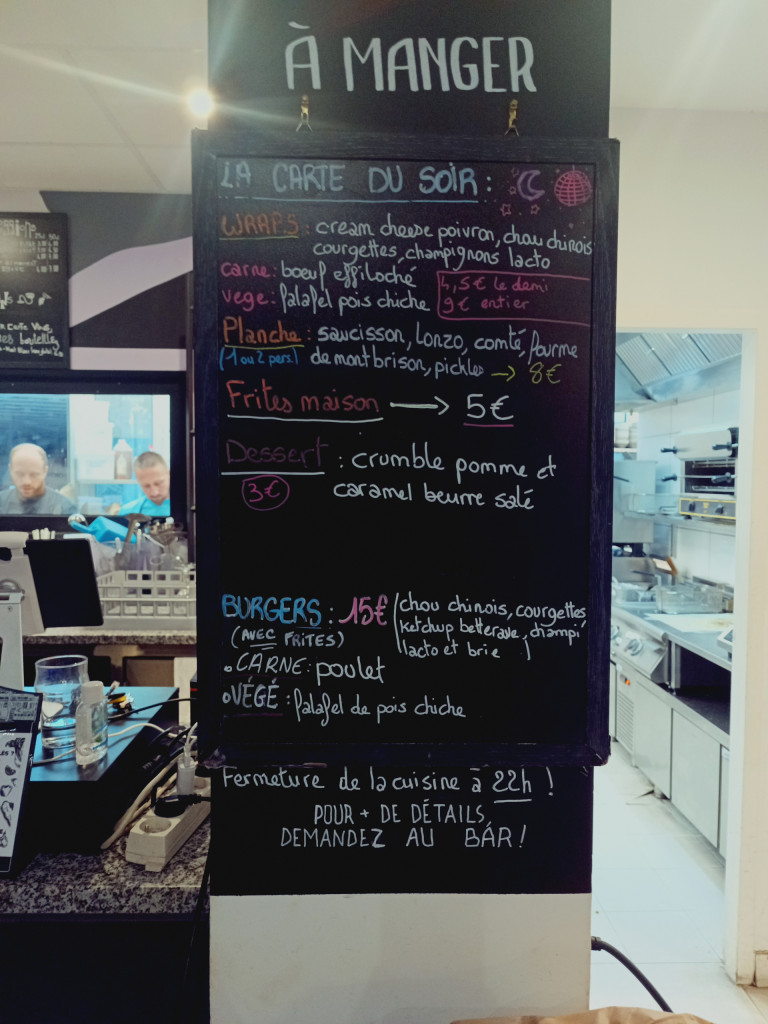 À MANGER
LA CARTE DU SOIR :
WRAPS : cream cheese poivron, chou chinois
courgettes, champignons lacto
carne : boeuf effiloché
vege : falafel pois chiche
4,5€ le demi
9€ entier
Planche : saucisson, Lonzo, comté, fourme
(1 ou 2 pers) de montbrison, pickles → 8€
Frites maison → 5€
Dessert : crumble pomme et
3€ caramel beurre salé
BURGERS : 15€ (chou chinois, courgettes
(AVEC FRITES) ketchup betterave, champi
lacto et brie )
• CARNE : poulet
• VÉGÉ : falafel de pois chiche
Fermeture de la cuisine à 22h !
POUR + DE DÉTAILS,
DEMANDEZ AU BAR !